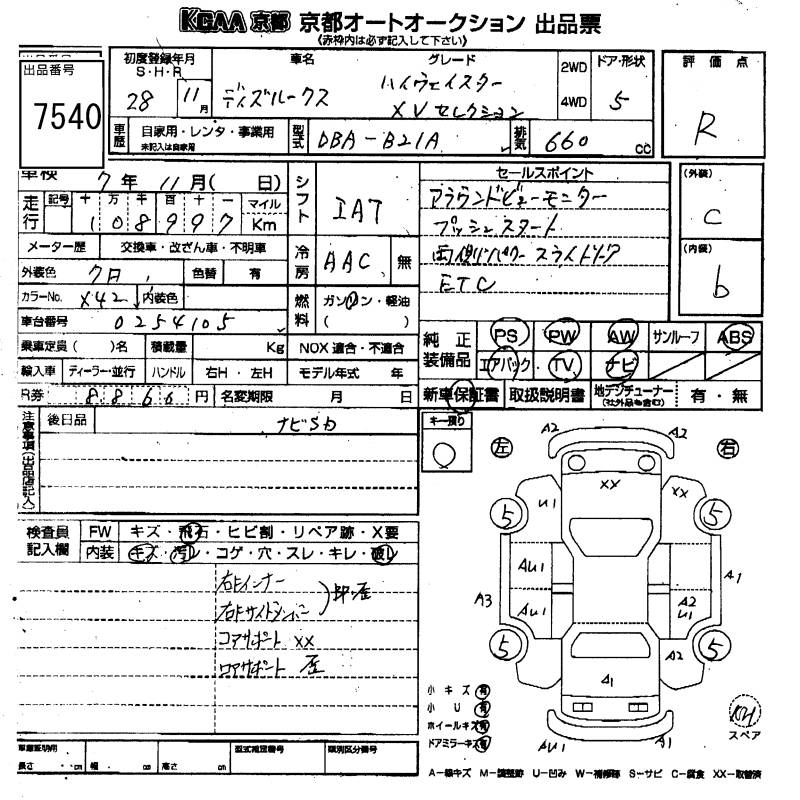 KCAA 京都 京都オートオークション 出品票
《赤枠内は必ず記入して下さい》
出品番号
7540
初度登録年月
S・H・R
28 11月
車名
ディズルークス
グレード
ハイウェイスター
XVセレクション
2WD
4WD
ドア・形状
5
評価点
R
車歴
自家用・レンタ・事業用
未記入は自家用
型式
DBA-B21A
排気
660 cc
車検 7年 11月( 日)
シフト
IAT
セールスポイント
アラウンドビューモニター
プッシュスタート
両側パワースライドドア
ETC
(外装)
C
(内装)
b
走行
記号 十 万 千 百 十 一 マイル
108997 Km
メーター歴 交換車・改ざん車・不明車
冷房
AAC 無
外装色 クロ 色替 有
カラーNo. X42 内装色
燃料
ガソリン・軽油
( )
車台番号 0254105
純正装備品
PS PW AW サンルーフ ABS
エアバック TV ナビ
乗車定員 ( )名 積載量 Kg NOX適合・不適合
輸入車 ディーラー・並行 ハンドル 右H・左H モデル年式 年
R券 8860 円 名変期限 月 日
新車保証書 取扱説明書 地デジチューナー(社外品も含む) 有・無
注意事項(出品店記入)
後日品
ナビSD
キー預り
左 右
検査員記入欄
FW キズ・飛石・ヒビ割・リペア跡・X要
内装 キズ・汚レ・コゲ・穴・スレ・キレ・破レ
右Fインナー
右Fサイドメンバー
コアサポート XX
ロアサポート
A2 A2
XX
U1 XX
5 5
AU1 A1
A3 AU1 A2
U1
5 5
A2
A1
AU1 A1
小キズ 有
小U 有
ホイールキズ 有
ドアミラーキズ 有
スペア
車庫証明用
長さ cm 幅 cm 高さ cm
型式指定番号
類別区分番号
A-線キズ M-調整跡 U-凹み W-補修跡 S-サビ C-腐食 XX-取替済